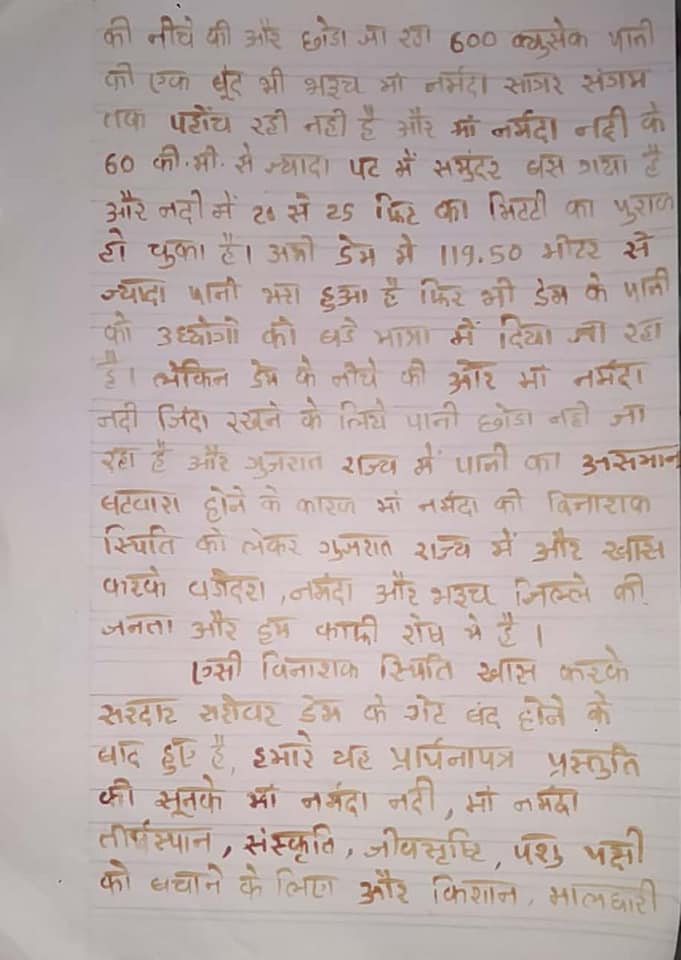 की नीचे की और छोडा जा रहा 600 क्युसेक पानी
की एक बूंद भी भरुच मां नर्मदा सागर संगम
तक पहोंच रही नही है और मां नर्मदा नदी के
60 की.मी. से ज्यादा पट में समुंदर घस गया है
और नदी में 20 से 25 फिट का मिटटी का पुराण
हो चुका है। अभी डेम मे 119.50 मीटर से
ज्यादा पानी भरा हुआ है फिर भी डेम के पानी
को उध्योगो को बडे मात्रा में दिया जा रहा
है। लेकिन डेम के नीचे की ओर मां नर्मदा
नदी जिंदा रखने के लिये पानी छोडा नही जा
रहा है और गुजरात राज्य में पानी का असमान
बटवारा होने के कारण मां नर्मदा की विनाशक
स्थिति को लेकर गुजरात राज्य में और खास
करके वडोदरा, नर्मदा और भरुच जिल्ले की
जनता और हम काफी रोष मे है।
एसी विनाशक स्थिति खास करके
सरदार सरोवर डेम के गेट बंद होने के
बाद हुए है, हमारे यह प्रार्थनापत्र प्रस्तुति
को सूनके मां नर्मदा नदी, मां नर्मदा
तीर्थस्थान, संस्कृति, जीवसृष्टि, पशु पक्षी
को बचाने के लिए और किशान, मालधारी